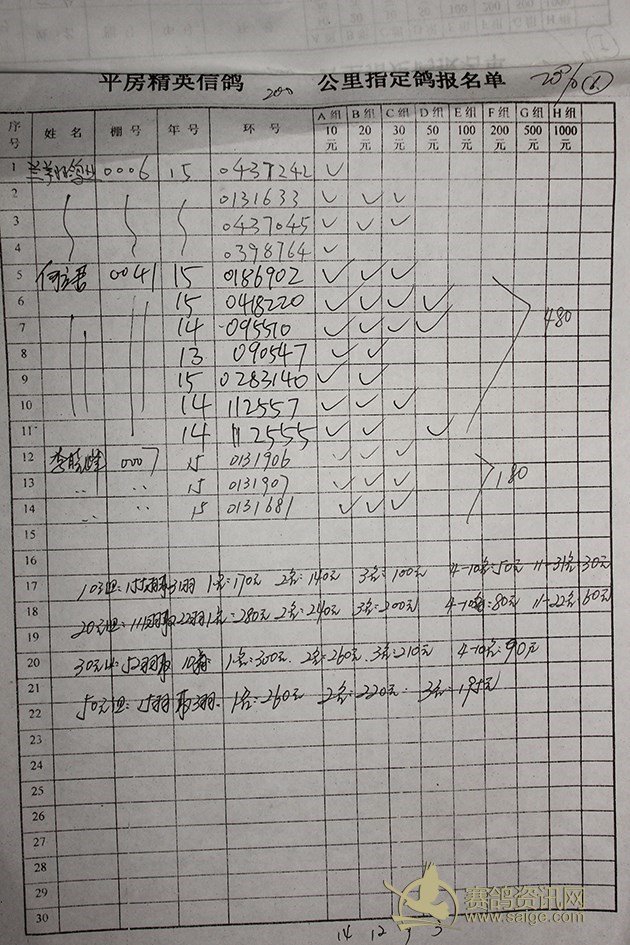 平房精英信鸽 200 公里指定鸽报名单
序号 姓名 棚号 年号 环号 A组10元 B组20元 C组30元 D组50元 E组100元 F组200元 G组500元 H组1000元
1 0006 15 0437242 ✓
2 0131633 ✓ ✓ ✓
3 0437045 ✓ ✓ ✓
4 0398764 ✓
5 0041 15 0186902 ✓ ✓ ✓
6 15 0418220 ✓ ✓ ✓ ✓
7 14 095510 ✓ ✓ ✓ ✓ 480
8 13 090547 ✓ ✓
9 15 0283140 ✓ ✓
10 14 112557 ✓ ✓ ✓
11 14 112555 ✓ ✓ ✓
12 0007 15 0131906 ✓ ✓ ✓
13 〃 〃 15 0131907 ✓ ✓ ✓ 180
14 〃 〃 15 0131681 ✓ ✓ ✓
15
16
17 10元组:155羽取31羽 1名:170元 2名:140元 3名:100元 4-10名:50元 11-31名:30元
18 20元组:111羽取22羽 1名:280元 2名:240元 3名:200元 4-10名:80元 11-22名:60元
19
20 30元组:52羽取10名 1名:300元 2名:260元 3名:210元 4-10名:90元
21
22 50元组:15羽取3羽 1名:260元 2名:220元 3名:195元
23
24
25
26
27
28
29
30
14 12 9 3
赛鸽资讯网
www.saige.com